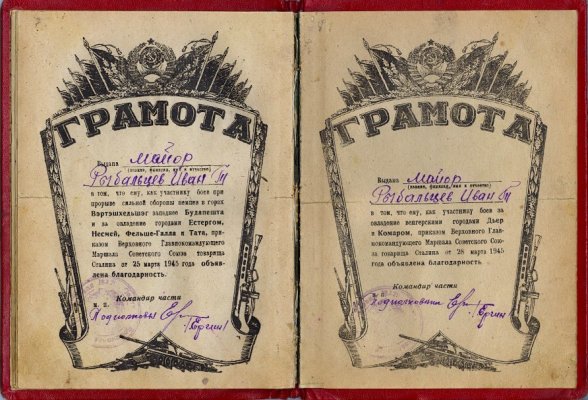 ГРАМОТА
Выдана майор
(звание, фамилия, имя и отчество)
Рыбальцев Иван Т
в том, что ему, как участнику боев при
прорыве сильной обороны немцев в горах
Вэртэшхедьшэг западнее Будапешта
и за овладение городами Естергом,
Несмей, Фельше-Галла и Тата, при-
казом Верховного Главнокомандующего
Маршала Советского Союза товарища
Сталина от 25 марта 1945 года объяв-
лена благодарность.
Командир части
п. п.
Подполковн
ГРАМОТА
Выдана майор
(звание, фамилия, имя и отчество)
Рыбальцев Иван Т
в том, что ему, как участнику боев за
овладение венгерскими городами Дьер
и Комаром, приказом Верховного Глав-
нокомандующего Маршала Советского Сою-
за товарища Сталина от 28 марта 1945
года объявлена благодарность.
Командир части
п. п.
Подполковник